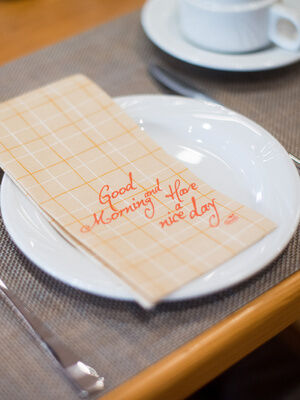 Good
Morning and Have
a
nice day